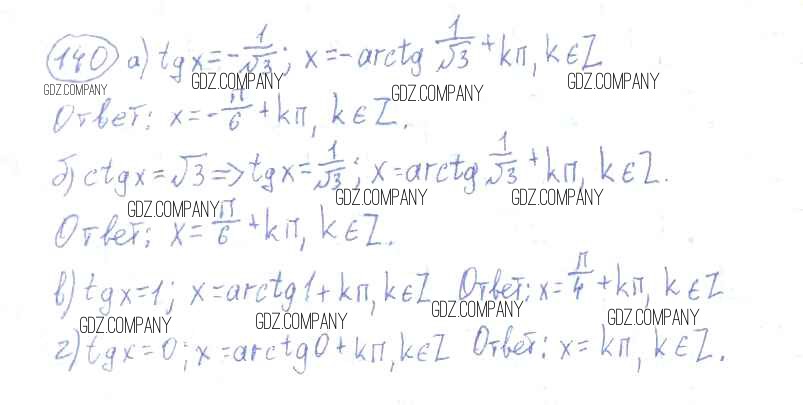 140 а) tgx = -1/√3; x = -arctg 1/√3 + kπ, k∈Z
GDZ.COMPANY GDZ.COMPANY GDZ.COMPANY
Ответ: x = -π/6 + kπ, k∈Z.
б) ctgx = √3 => tgx = 1/√3; x = arctg 1/√3 + kπ, k∈Z.
GDZ.COMPANY GDZ.COMPANY GDZ.COMPANY
Ответ: x = π/6 + kπ, k∈Z.
в) tgx = 1; x = arctg1 + kπ, k∈Z Ответ: x = π/4 + kπ, k∈Z
GDZ.COMPANY GDZ.COMPANY GDZ.COMPANY GDZ.COMPANY
г) tgx = 0; x = arctg0 + kπ, k∈Z Ответ: x = kπ, k∈Z.